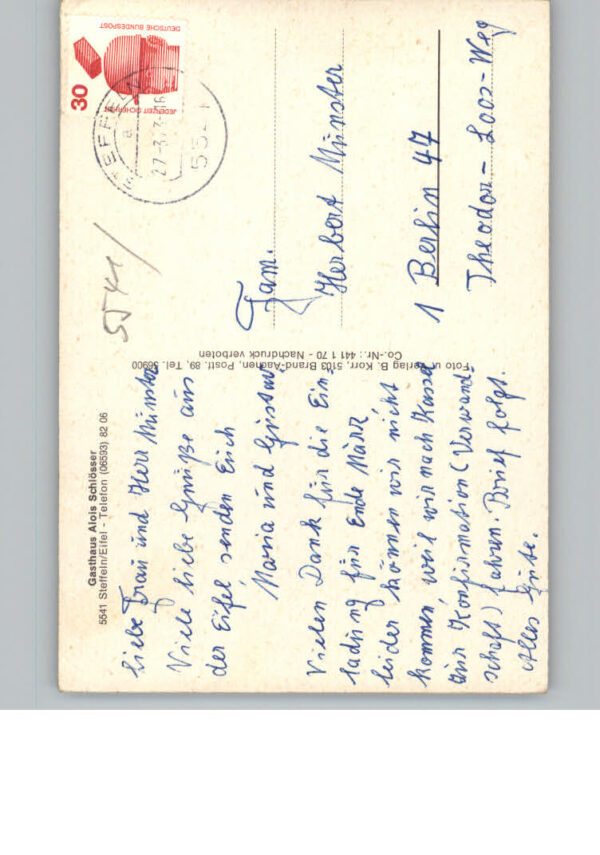 Gasthaus Alois Schlösser
5541 Steffeln/Eifel - Telefon (06593) 82 06
Liebe Frau und Herr Münster
Viele liebe Grüße aus
der Eifel senden Euch
Maria und Gustav
Vielen Dank für die Ein-
ladung für Ende März
leider können wir nicht
kommen, weil wir nach Kassel
zur Konfirmation (Verwand-
schaft) fahren. Brief folgt.
Alles Gute.
Foto u. Verlag B. Korr, 5103 Brand-Aachen, Postf. 89, Tel. 36900
Co.-Nr.: 441 1 70 - Nachdruck verboten
5541
DEUTSCHE BUNDESPOST
JEDERZEIT SICHERHEIT
30
STEFFELN
a
5541
Fam.
Herbert Münster
1 Berlin 47
Theodor-Loos-Weg